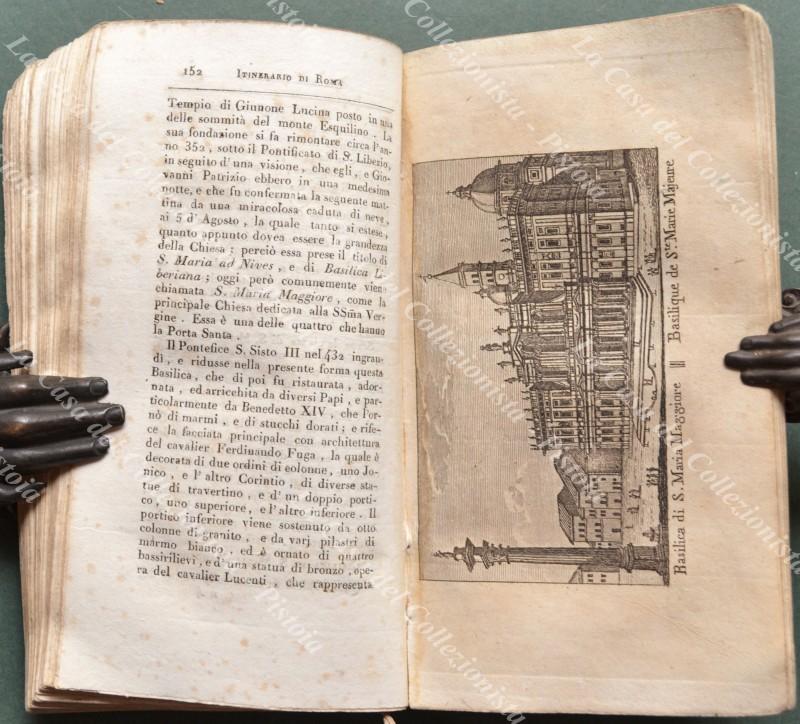 152 ITINERARIO DI ROMA
Tempio di Giunone Lucina posto in una
delle sommità del monte Esquilino . La
sua fondazione si fa rimontare circa l'an-
no 352 , sotto il Pontificato di S. Liberio,
in seguito d'una visione, che egli, e Gio-
vanni Patrizio ebbero in una medesima
notte, e che fu confermata la seguente mat-
tina da una miracolosa caduta di neve,
ai 5 d'Agosto , la quale tanto si estese,
quanto appunto dovea essere la grandezza
della Chiesa ; perciò essa prese il titolo di
S. Maria ad Nives , e di Basilica Li-
beriana ; oggi però comunemente viene
chiamata S. Maria Maggiore , come la
principale Chiesa dedicata alla SSma Ver-
gine . Essa è una delle quattro che hanno
la Porta Santa .
Il Pontefice S. Sisto III nel 432 ingran-
dì , e ridusse nella presente forma questa
Basilica, che di poi fu ristaurata , ador-
nata , ed arricchita da diversi Papi , e par-
ticolarmente da Benedetto XIV , che l'or-
nò di marmi , e di stucchi dorati ; e rife-
ce la facciata principale con architettura
del cavalier Ferdinando Fuga , la quale è
decorata di due ordini di colonne , uno Jo-
nico , e l'altro Corintio , di diverse sta-
tue di travertino , e d'un doppio porti-
co , uno superiore , e l'altro inferiore . Il
portico inferiore viene sostenuto da otto
colonne di granito , e da varj pilastri di
marmo bianco , ed è ornato di quattro
bassirilievi , e d'una statua di bronzo , ope-
ra del cavalier Lucenti , che rappresenta
Basilica di S. Maria Maggiore || Basilique de Ste. Marie Majeure
La Casa del Collezionista - Pistoia